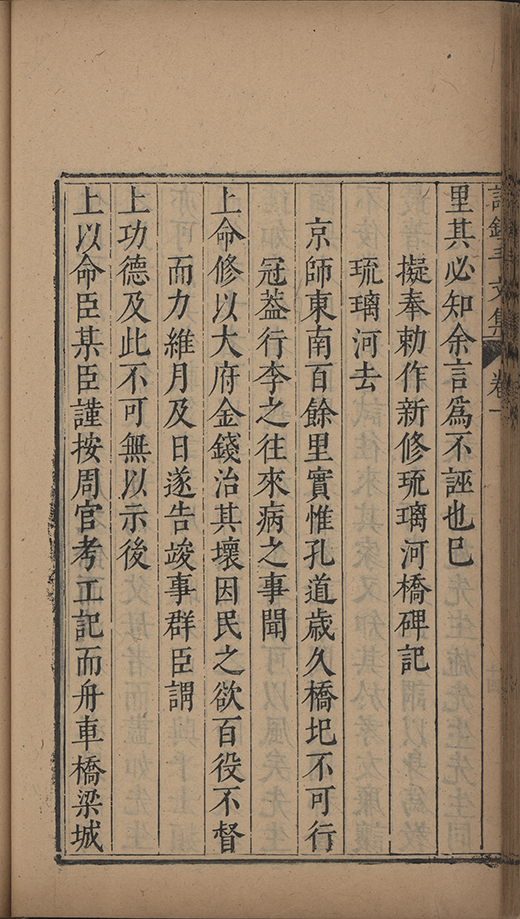 文集 卷一
里其必知余言爲不誣也巳
擬奉勅作新修琉璃河橋碑記
琉璃河去
京師東南百餘里實惟孔道歳久橋圯不可行
冠葢行李之往來病之事聞
上命修以大府金錢治其壞因民之欲百役不督
而力維月及日遂告竣事群臣謂
上功德及此不可無以示後
上以命臣某臣謹按周官考工記而舟車橋梁城